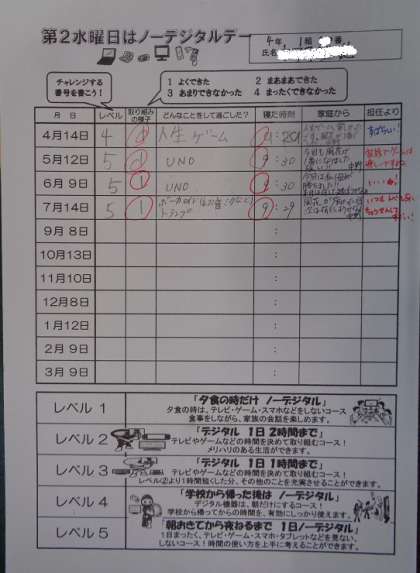 第2水曜日はノーデジタルデー
4年 1組 番
氏名
チャレンジする
番号を書こう！
1 よくできた 2 まあまあできた
3 あまりできなかった 4 まったくできなかった
月 日 レベル 取り組みの様子 どんなことをして過ごした？ 寝た時刻 家庭から 担任より
4月14日 4 人生ゲーム 9:20 すばらしい!
5月12日 5 UNO 9:30
6月9日 5 1 UNO 9:30
7月14日 5 1 トランプ 9:29
9月8日 :
10月13日 :
11月10日 :
12月8日 :
1月12日 :
2月9日 :
3月9日 :
レベル 1 「夕食の時だけ ノーデジタル」
夕食の時は、テレビ・ゲーム・スマホなどをしないコース
食事をしながら、家族の会話を楽しめます。
レベル 2 「デジタル 1日2時間まで」
テレビやゲームなどの時間を決めて取り組むコース！
メリハリのある生活ができます。
レベル 3 「デジタル 1日1時間まで」
テレビやゲームなどの時間を決めて取り組むコース！
レベル②より1時間短くした分、その他のことを充実させることができます。
レベル 4 「学校から帰った後は ノーデジタル」
デジタル機器は、朝だけにするコース！
学校から帰ってからの時間を、有効にしっかり使えます。
レベル 5 「朝おきてから夜ねるまで 1日ノーデジタル」
1日まったく、テレビ・ゲーム・スマホ・タブレットなどを見ない、
しないコース！時間の使い方を上手に考えることができます。